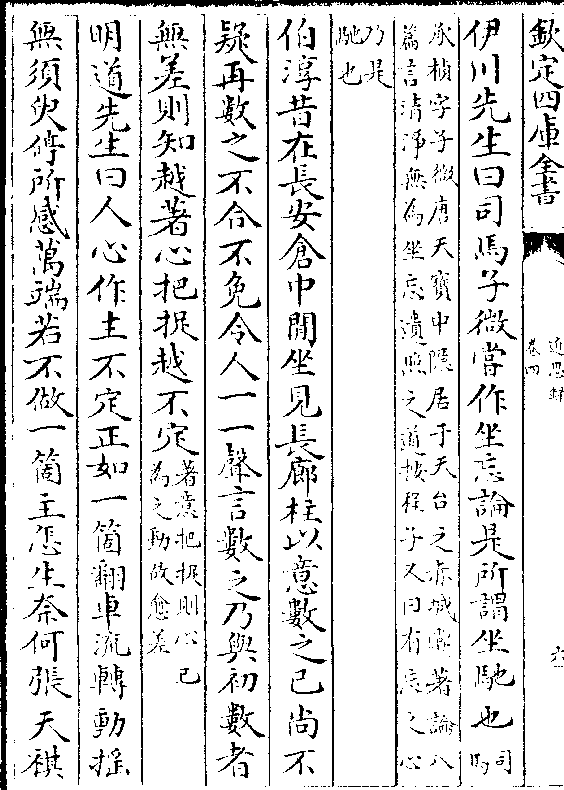 欽定四庫全書
近思録
卷四
六
伊川先生曰司馬子微嘗作坐忘論是所謂坐馳也司馬
承楨字子微唐天寶中隱居于天台之赤城嘗著論八
篇言清淨無為坐忘遺照之道按程子又曰有忘之心
乃是
馳也
伯淳昔在長安倉中閒坐見長廊柱以意數之已尚不
疑再數之不合不免令人一一聲言數之乃與初數者
無差則知越著心把捉越不定著意把捉則心已
為之動故愈差
明道先生曰人心作主不定正如一箇翻車流轉動搖
無須臾停所感萬端若不做一箇主怎生奈何張天祺